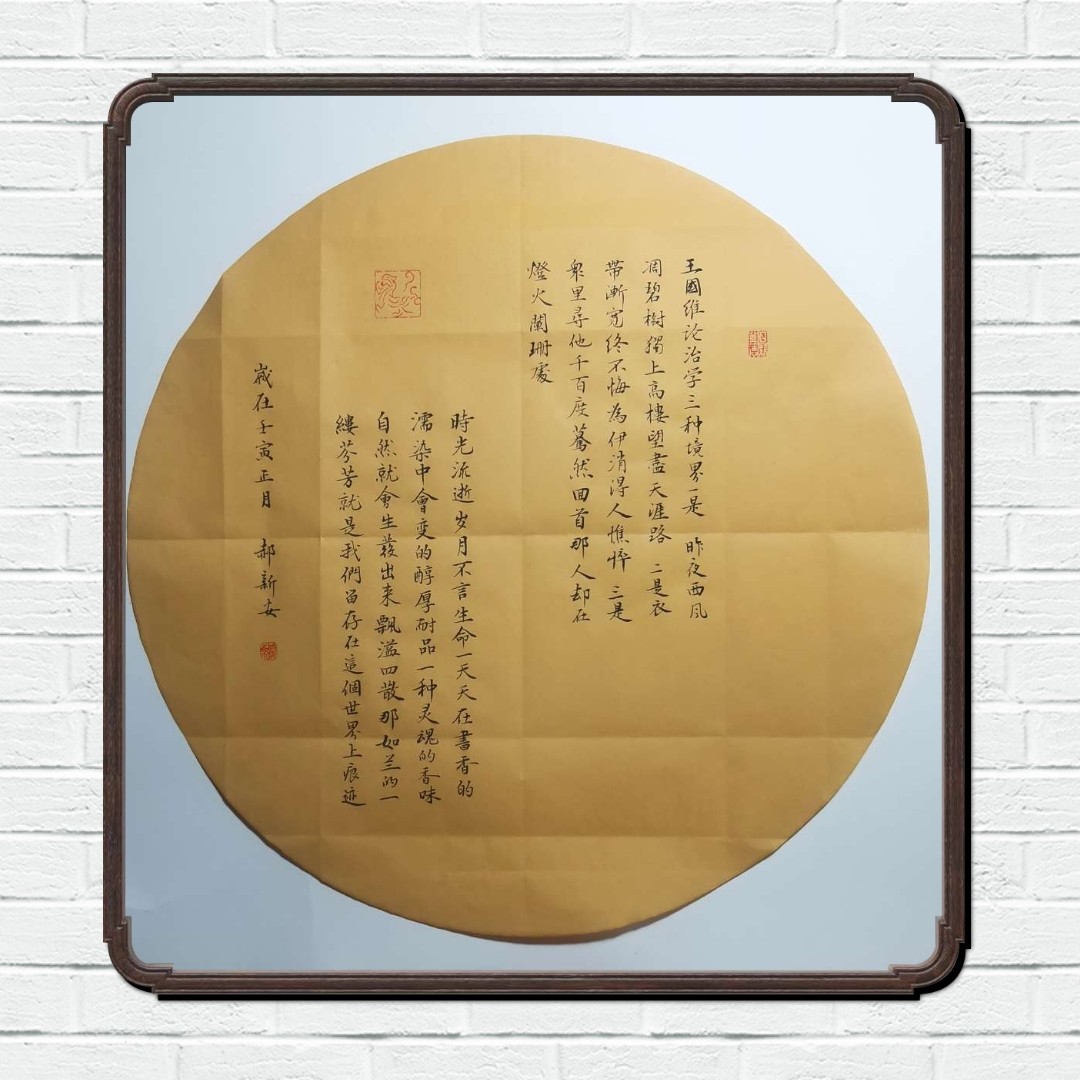 王國维论治学三种境界一是 昨夜西风
凋碧樹獨上高樓望盡天涯路 二是衣
帶漸宽终不悔為伊消得人憔悴 三是
眾里尋他千百度驀然回首那人却在
燈火闌珊處
時光流逝岁月不言生命一天天在書香的
濡染中會变的醇厚耐品一种灵魂的香味
自然就會生發出来飘溢四散那如兰的一
縷芬芳就是我們留存在這個世界上痕迹
歲在壬寅正月 郝新安